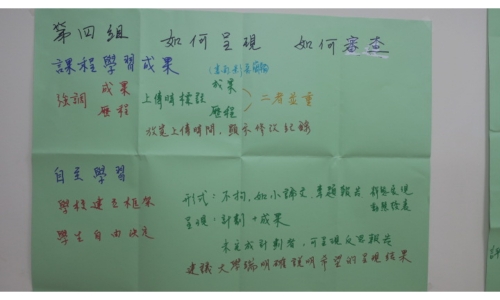 第四組 如何呈現 如何審查
課程學習成果
強調 成果 歷程 上傳時標註 成果 歷程 二者並重
放寬上傳時間,顯示修改紀錄
自主學習
學校建立框架
學生自由決定
形式:不拘,如小論文、專題報告
呈現:計劃+成果
未完成計劃者,可呈現反思報告
建議大學端明確說明希望的呈現結果